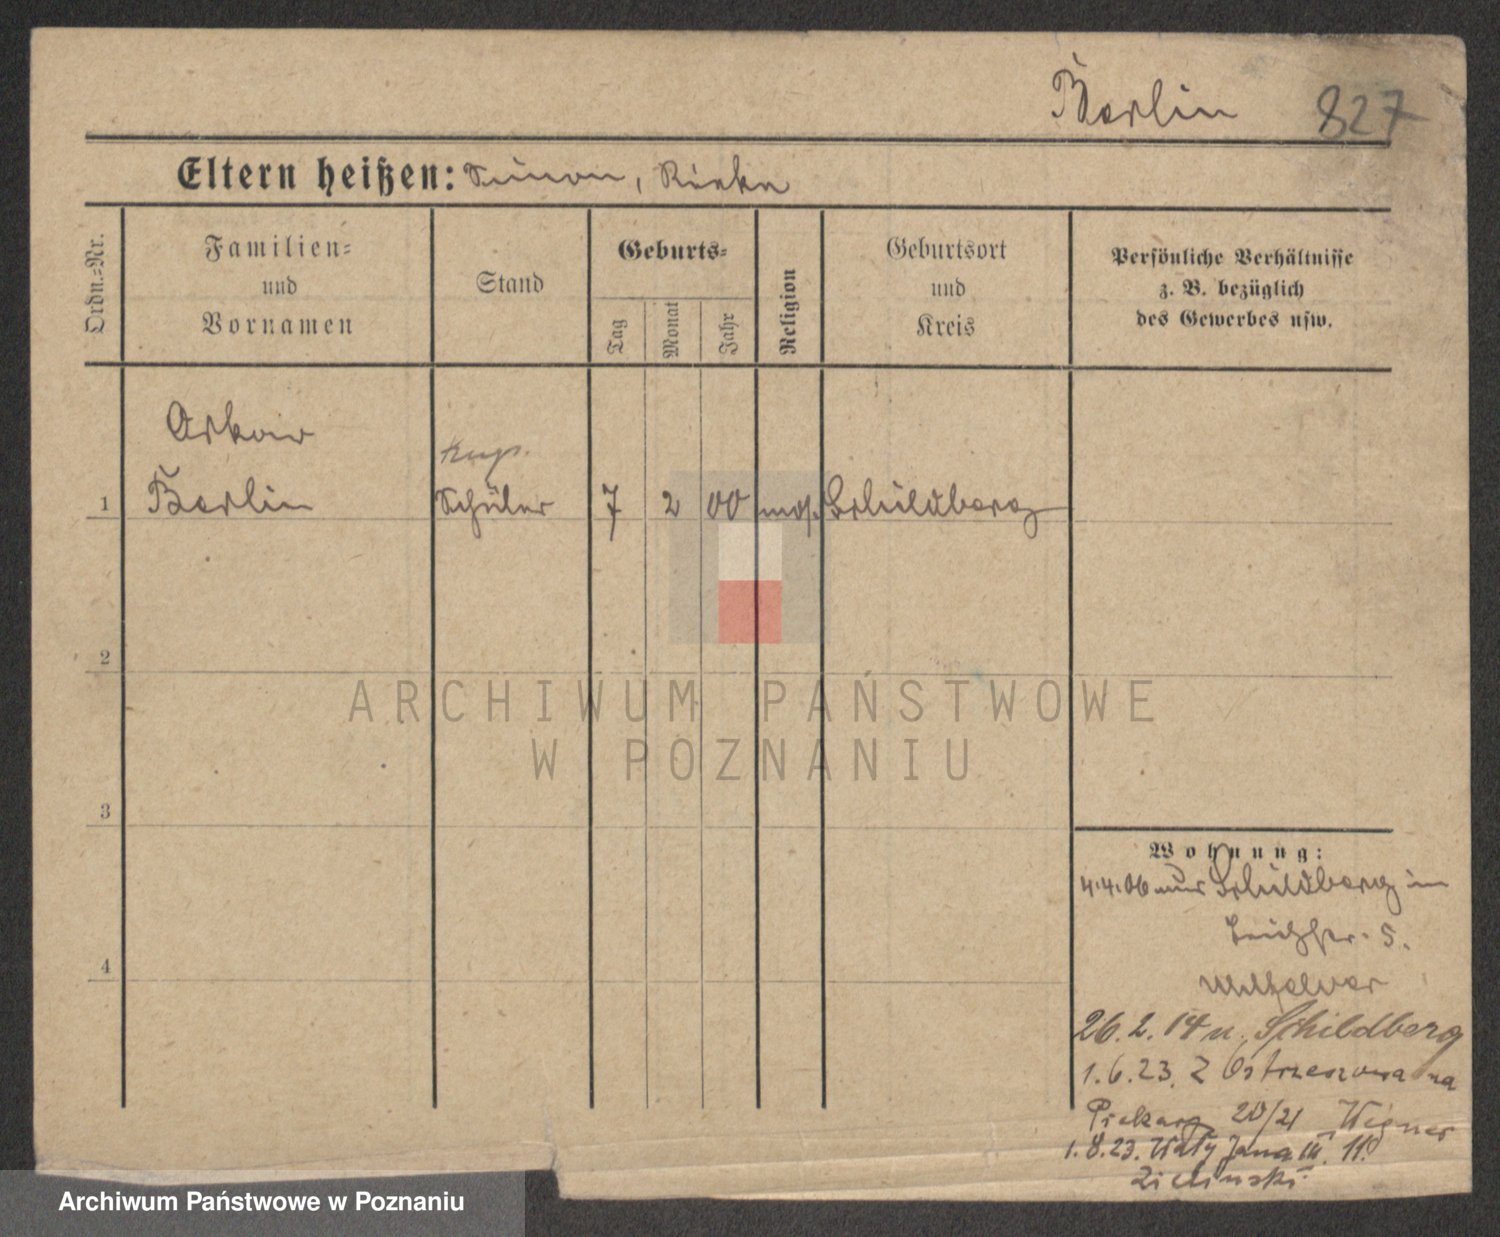 Berlin 827
Eltern heißen: Simon, Rieke
Ordn.=Nr.
Familien=
und
Vornamen
Stand
Geburts=
Tag
Monat
Jahr
Religion
Geburtsort
und
Kreis
Persönliche Verhältnisse
z. B. bezüglich
des Gewerbes usw.
Oskar
Kups.
1 Berlin Schüler 7 2 00 mos. Schildberg
2
ARCHIWUM PAŃSTWOWE
W POZNANIU
3
Wohnung:
4.4.06 nur Schildberg in
5.
4
26.2.14 n. Schildberg
1.6.23. Z Ostrzeszowa na
Piekary 20/21 Wegner
1.8.23. Wały Jana III. 11.
Zieliński
Archiwum Państwowe w Poznaniu